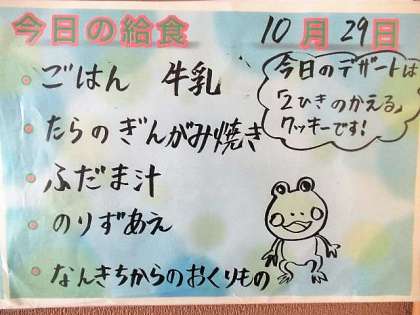 今日の給食 10月29日
ごはん 牛乳
たらのぎんがみ焼き
ふだま汁
のりずあえ
なんきちからのおくりもの
今日のデザートは
「2ひきのかえる」
クッキーです!